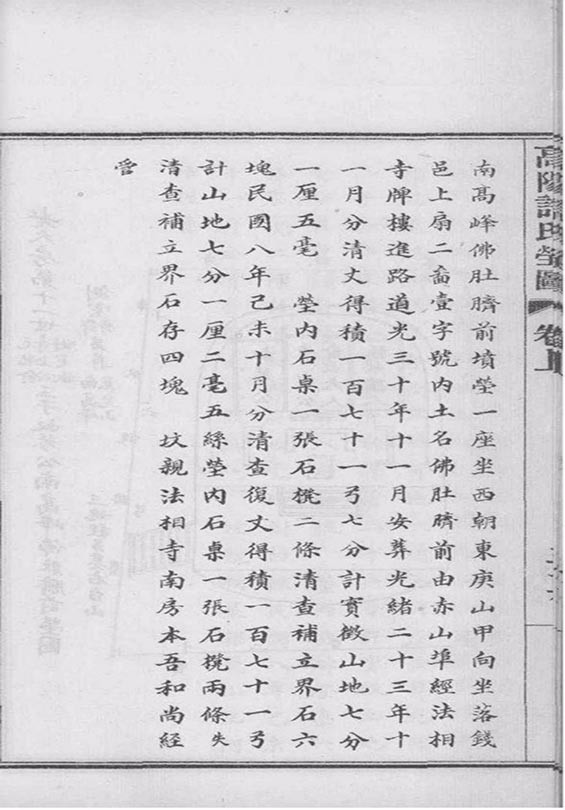 高陽許氏塋圖 卷上
南高峰佛肚臍前墳塋一座坐西朝東庚山甲向坐落錢
邑上扇二啚壹字號內土名佛肚臍前由赤山埠經法相
寺牌樓進路道光三十年十一月安葬光緒二十三年十
一月分清丈得積一百七十一弓七分計實徵山地七分
一厘五毫 塋內石桌一張石櫈二條清查補立界石六
塊民國八年己未十月分清查復丈得積一百七十一弓
計山地七分一厘二毫五絲塋內石桌一張石櫈兩條失
清查補立界石存四塊 坟親法相寺南房本吾和尚經
管